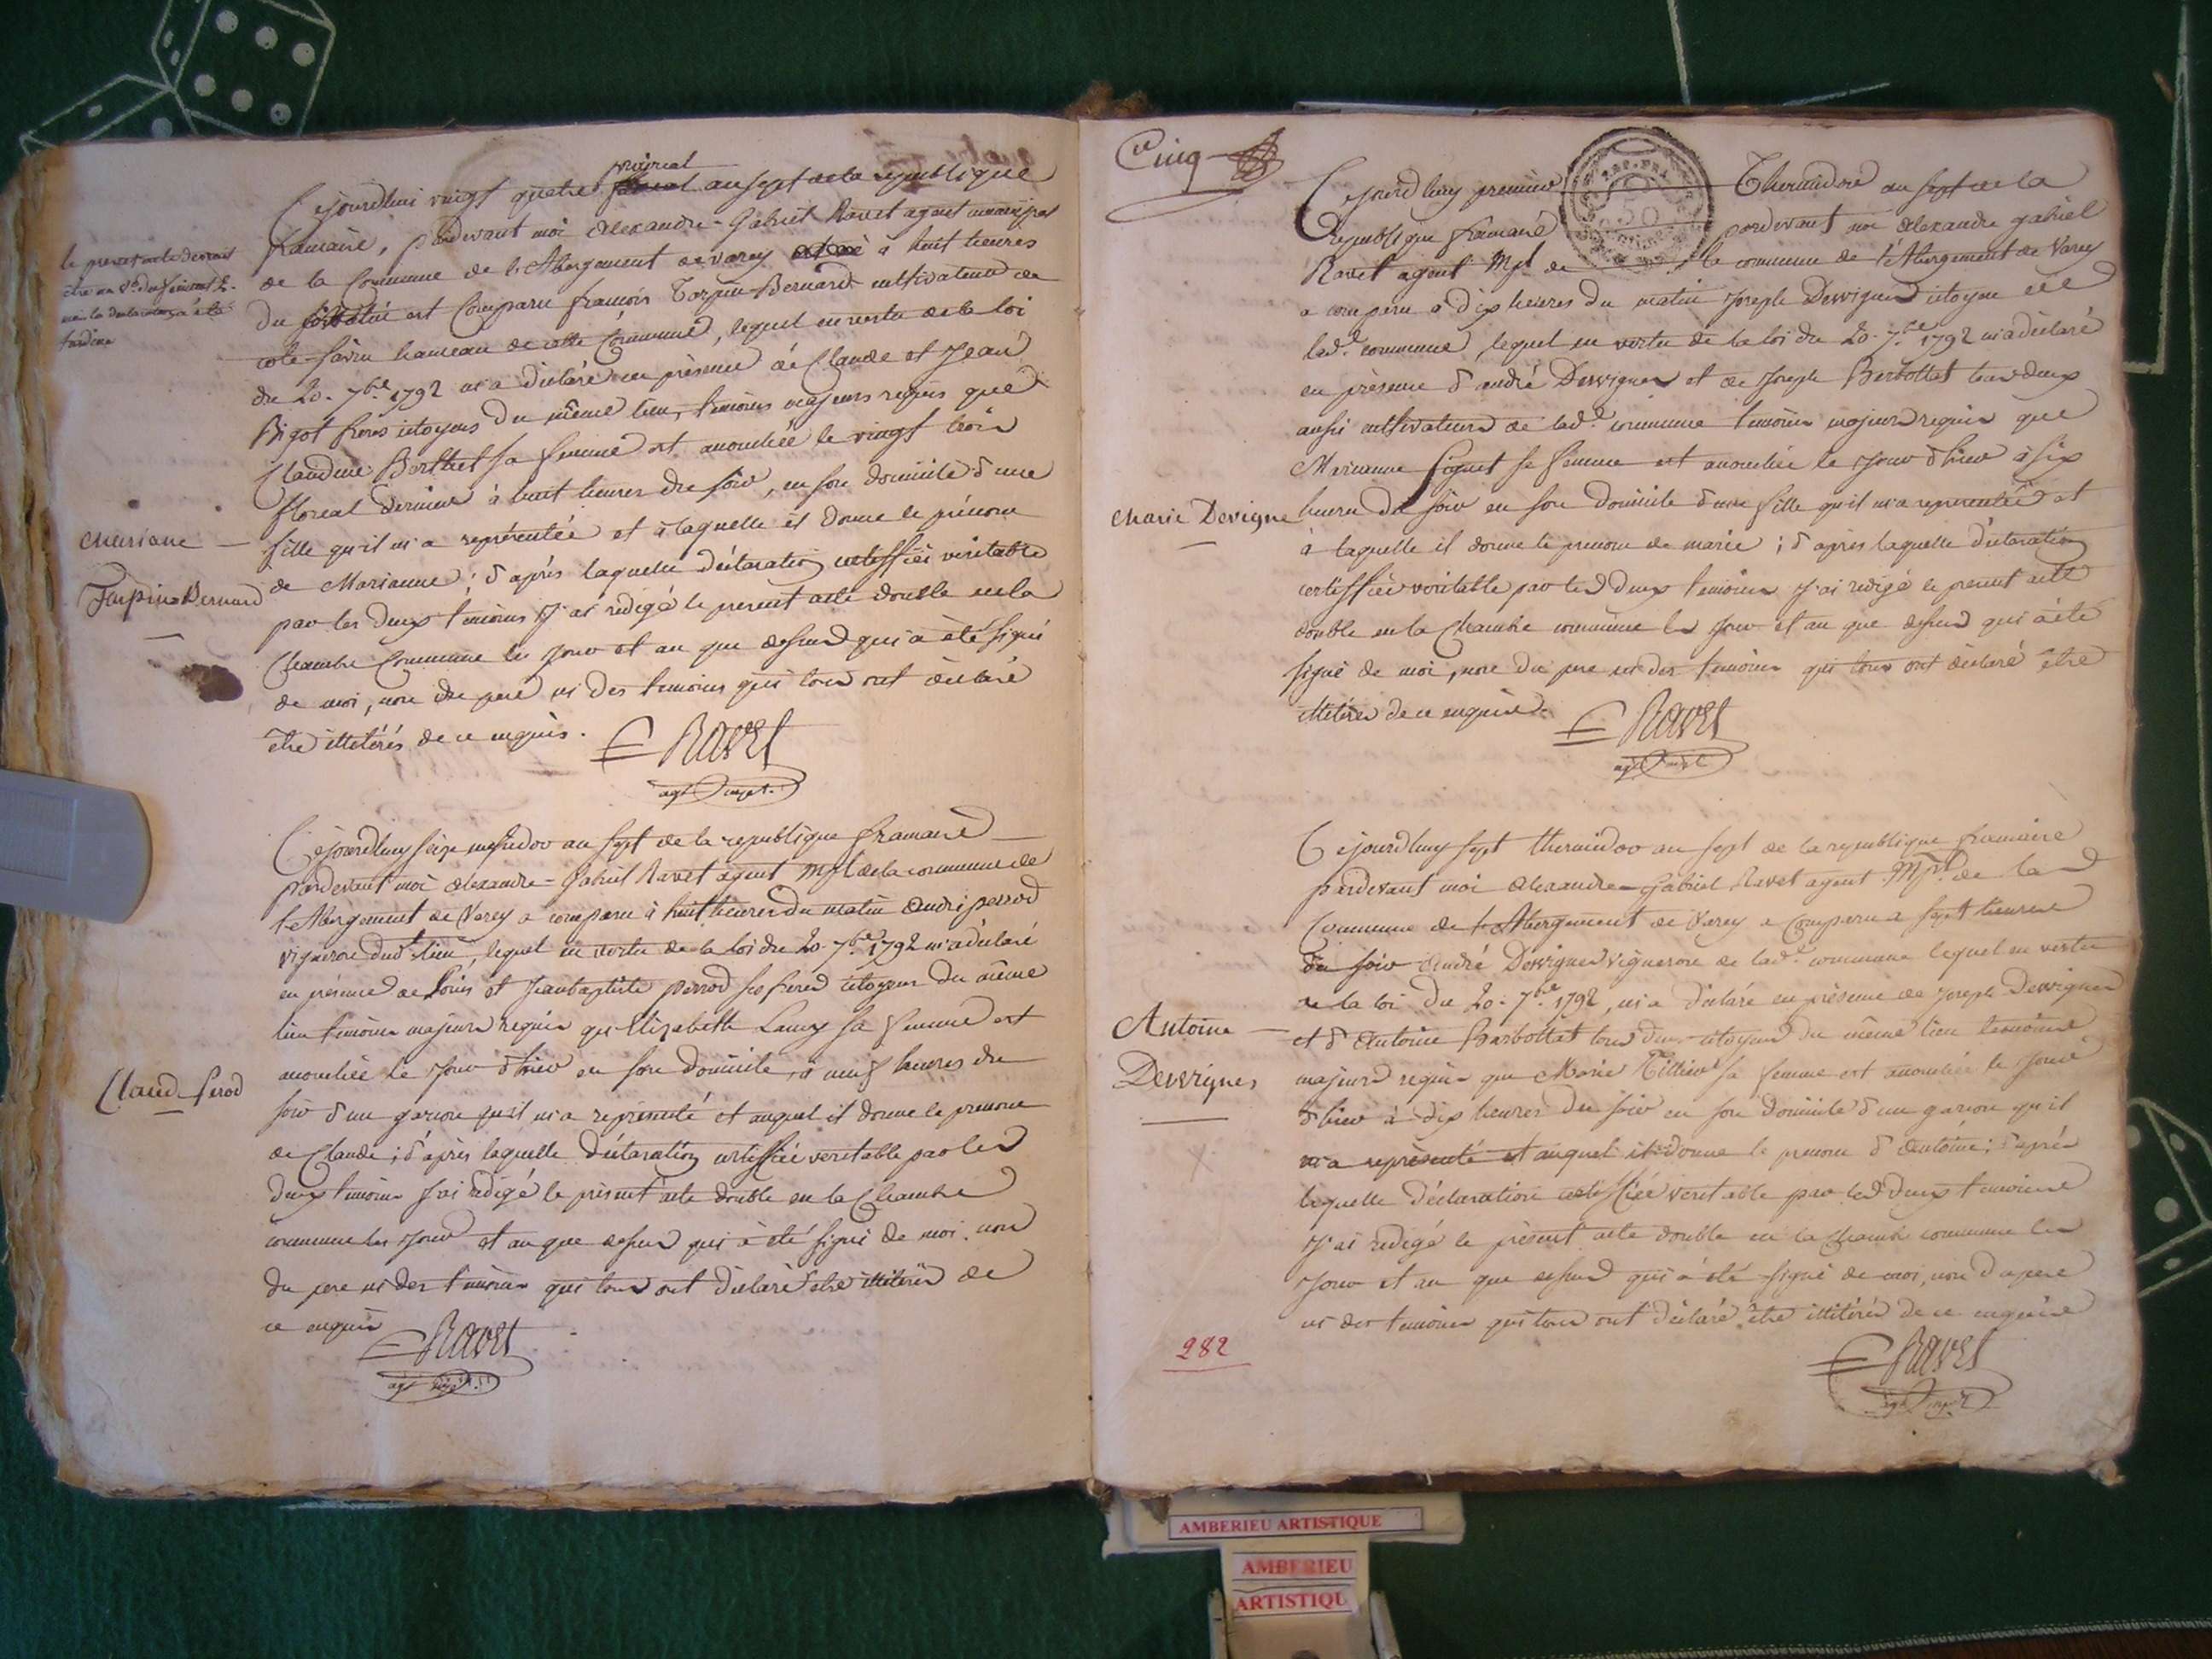 Cejourdhui vingt quatre prairial an sept de la republique
francaise, pardevant moi Alexandre-Gabriel Ravet agent municipal
de la Commune de l'Abergement de varey à huit heures
du est Comparu francois Tarpin-Bernard cultivateur de
cote-savin hameau de cette Commune, lequel en vertu de la loi
du 20. 7bre 1792 m'a déclaré en présence de Claude et Jean
Bigot freres citoyens du même lieu, temoins majeurs requis que
Claudine Berthet sa femme est accouchée le vingt trois
floreal dernier à huit heures du soir, en son domicile d'une
fille qu'il m'a représentée et à laquelle il donne le prénom
de Marianne; d'après laquelle déclaration certiffiée véritable
par les deux temoins J'ai redigé le present acte double en la
Chambre Commune les jour et an que dessus qui a été signé
de moi, non du pere ni des temoins qui tous ont déclaré
être illitérés de ce enquis.
Ravet
agt mpl.
le present acte devroit
tardive
Mariane
Tarpin Bernard
Cejourdhuy seize messidor an sept de la republique francaise
pardevant moi Alexandre-Gabriel Ravet agent Mpl de la commune de
l'Abergement de Varey a comparu à huit heures du matin André perrod
vigneron dud. lieu, lequel en vertu de la loi du 20. 7bre 1792 m'a déclaré
en présence de Louis et Jeanbaptiste perrod ses freres citoyens du même
lieu temoins majeurs requis qu'Elizabeth Lamy sa femme est
accouchée le jour d'hier en son domicile, à neuf heures du
soir d'un garcon qu'il m'a représenté et auquel il donne le prenom
de Claude; d'après laquelle déclaration certiffiée veritable par les
deux temoins J'ai redigé le présent acte double en la Chambre
commune les jour et an que dessus qui a été signé de moi, non
du pere ni des temoins qui tous ont déclaré etre illitérés de
ce enquis
Ravet
agt mpl.
Claud perod
Cinq
Cejourd'huy premier Thermidor an sept de la
republique francaise pardevant moi Alexandre gabriel
Ravet agent Mpl de la commune de l'Abergement de Varey
a comparu à dix heures du matin Joseph Dervignes citoyen de
lad. commune, lequel en vertu de la loi du 20. 7bre 1792 m'a déclaré
en présence d'andré Dervignes et de Joseph Barbottat tous deux
aussi cultivateurs de lad. commune temoins majeurs requis que
Marianne sa femme est accouchée le jour d'hier à six
heures du soir en son domicile d'une fille qu'il m'a representée et
à laquelle il donne le prenom de marie; d'après laquelle déclaration
certiffiée véritable par les deux temoins J'ai redigé le present acte
double en la Chambre commune les jour et an que dessus qui a été
signé de moi, non du pere ni des temoins qui tous ont déclaré être
illitérés de ce enquis.
Ravet
agt mpl
Marie Devigne
Cejourd'huy sept thermidor an sept de la republique francaise
pardevant moi Alexandre-Gabriel Ravet agent Mpl. de la
Commune de l'Abergement de Varey a Comparu à sept heures
du soir André Dervignes vigneron de lad. commune lequel en vertu
de la loi du 20. 7bre 1792, m'a déclaré en présence de Joseph Dervignes
et d'Antoine Barbottat tous deux citoyens du même lieu temoins
majeurs requis que Marie Tillier sa femme est accouchée le jour
d'hier à dix heures du soir en son domicile d'un garcon qu'il
m'a représenté et auquel il donne le prenom d'Antoine; d'après
laquelle déclaration certiffiée veritable par les deux temoins
J'ai redigé le présent acte double en la Chambre commune les
jour et an que dessus qui a été signé de moi, non du pere
ni des temoins qui tous ont déclaré être illitérés de ce enquis
Ravet
agt mpl
Antoine
Dervignes
282
AMBERIEU ARTISTIQUE
AMBERIEU
ARTISTIQU